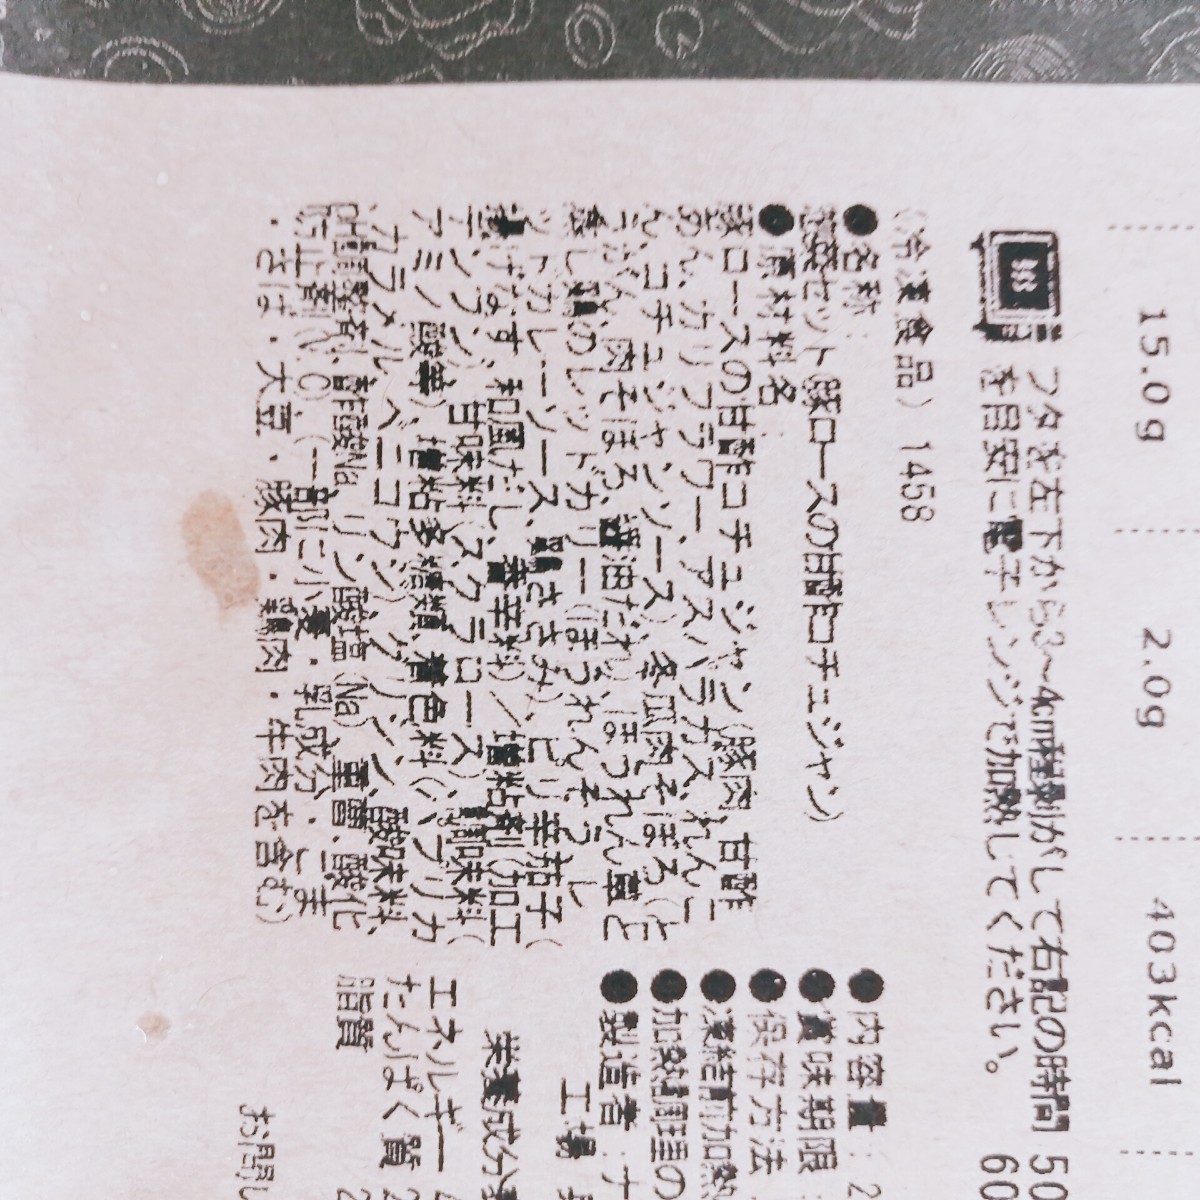 15.0g
2.0g
403kcal
フタを左下から3～4cm程剥がして右記の時間 50
を目安に電子レンジで加熱してください。 60
(冷凍食品) 1458
●名称
惣菜セット(豚ロースの甘酢コチュジャン)
●原材料名
豚ロースの甘酢コチュジャン(豚肉、甘酢
あん、カリフラワー、アスパラガス、れんこ
ん、コチュジャンソース)、冬瓜肉そぼろ(と
うがん、肉そぼろ、醤油だれ)、ほうれん草と
蒸し鶏のレッドカリー(ほうれんそう、レ
ッドカレーソース、鶏ささみ)、ピリ辛茄子(
揚げなす、和風だし、香辛料)／増粘剤(加工
デンプン)、甘味料(スクラロース)、調味料(
アミノ酸等)、増粘多糖類、着色料(パプリカ
、カラメル、ベニコウジ)、グリシン、酸味料、
pH調整剤、酢酸Na、リン酸塩(Na)、重曹、酸化
防止剤(V.C)、(一部に小麦・乳成分・ごま
・さば・大豆・豚肉・鶏肉・牛肉を含む)
●内容量: 2
●賞味期限:
●保存方法
●凍結前加熱
●加熱調理の
●製造者:ナ
工場
栄養成分
エネルギー
たんぱく質 2
脂質 2
お問い